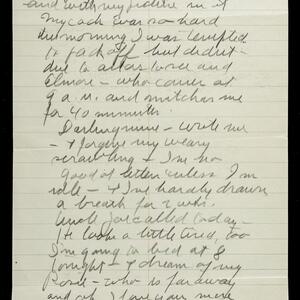 and with my picture in it
My cock was so hard
this morning I was tempted
to jack off but didn't -
due to actors voice and
Elmore - who came at
9 a.m. and with me
for 40 minutes.
Darling mine - write me
- & forgive my weary
scrawling - I'm no
good at letters unless I'm
- & I've hardly drawn
a breath for 2 wks.
Uncle Joe called today -
He looks a little tired, too
I'm going to bed at 8
tonight - & dream of my
- who is far away
and oh, I love your